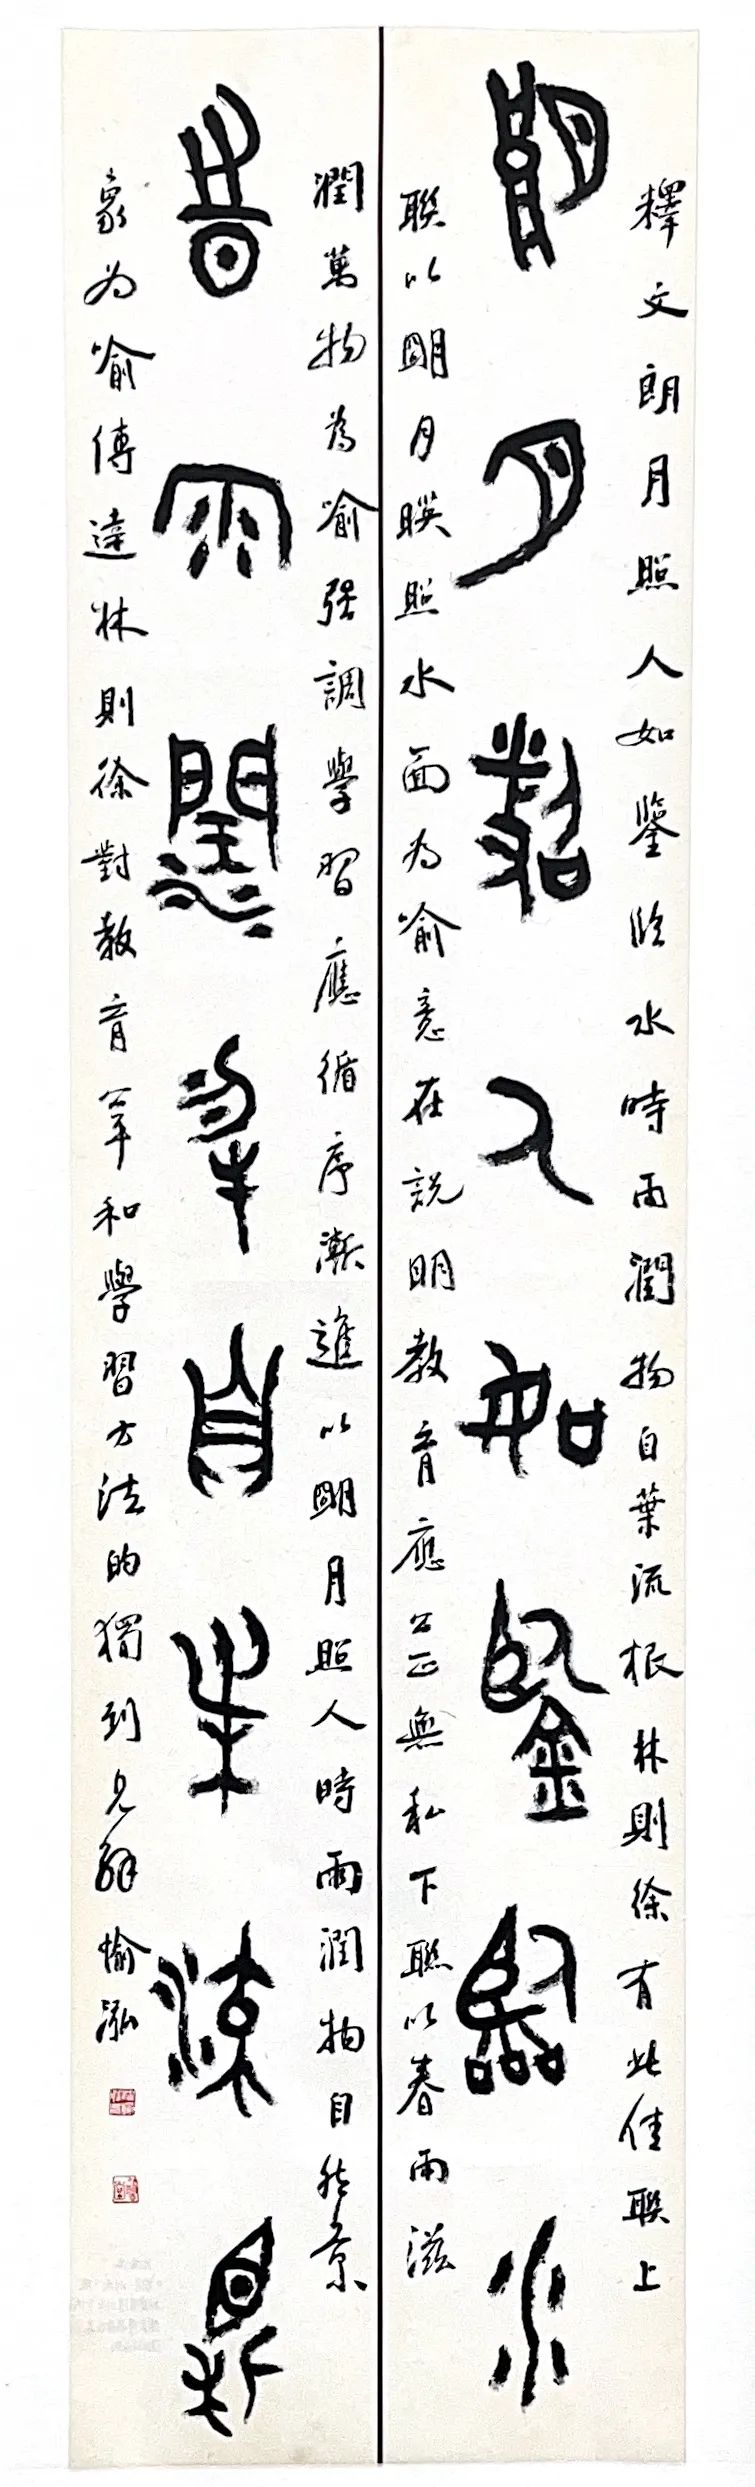 釋文朗月照人如鑒臨水時雨潤物自葉流根林則徐有此佳聯上
朗月照人如鑒臨水
聯以明月暎照水面為喻意在説明教育應公正無私下聯以春雨滋
潤萬物為喻强調學習應循序漸進以明月照人時雨潤物自然景
時雨潤物自葉流根
象为喻傳達林則徐對教育革和學習方法的獨到見解愉泓